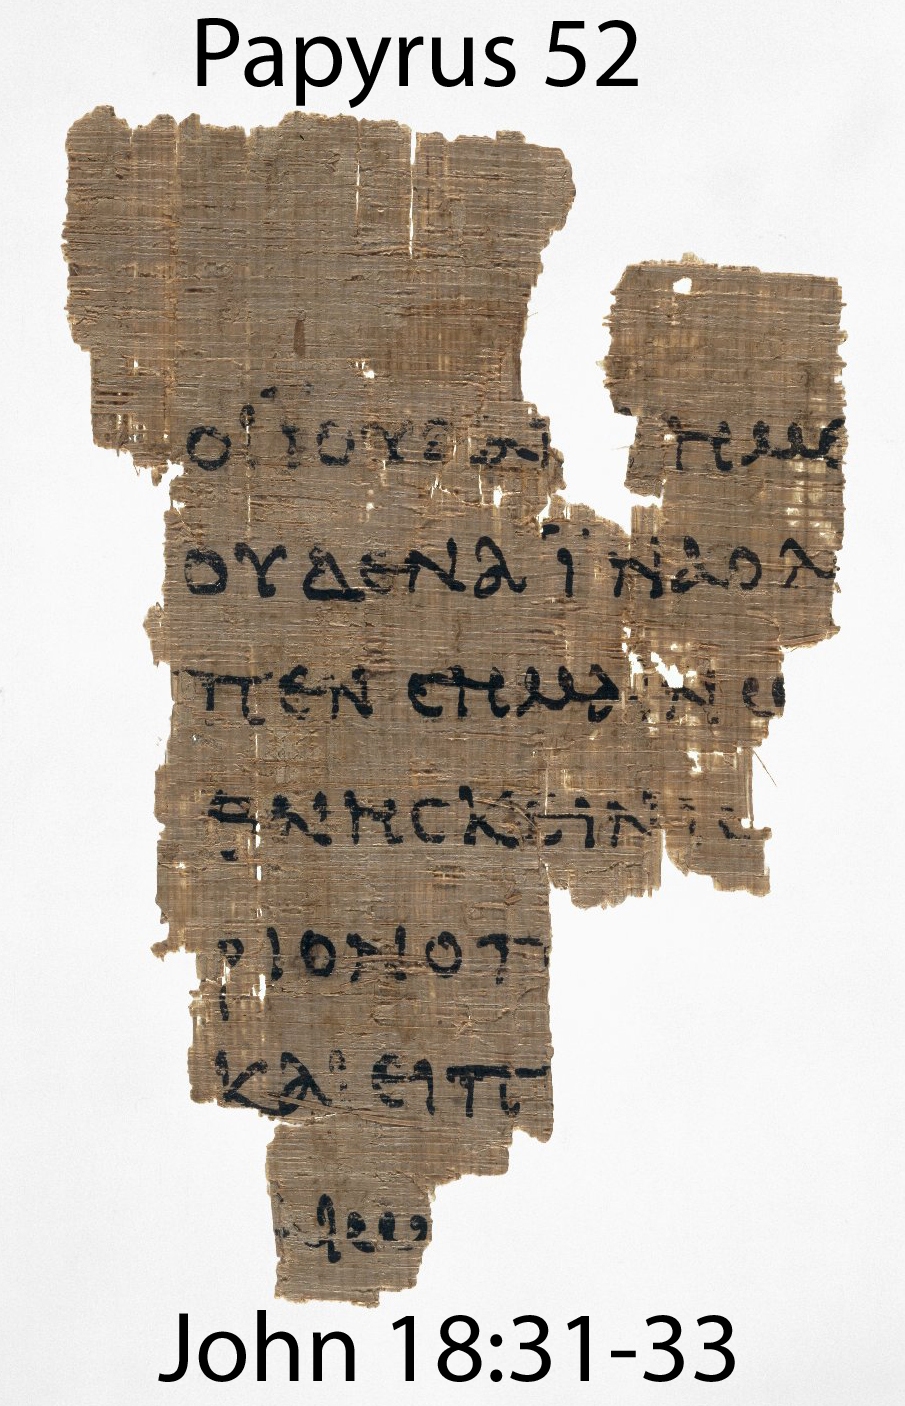 Papyrus 52
ΟΙ ΪΟΥΔΑΙ ΗΜΕ
ΟΥΔΕΝΑ ΪΝΑ Ο Λ
ΠΕΝ ϹΗΜΑΙΝΩ
ΘΝΗϹΚΕΙΝ ΙϹ
ΡΙΟΝ Ο Π
ΚΑΙ ΕΙΠ
ΑΙΩ
John 18:31-33